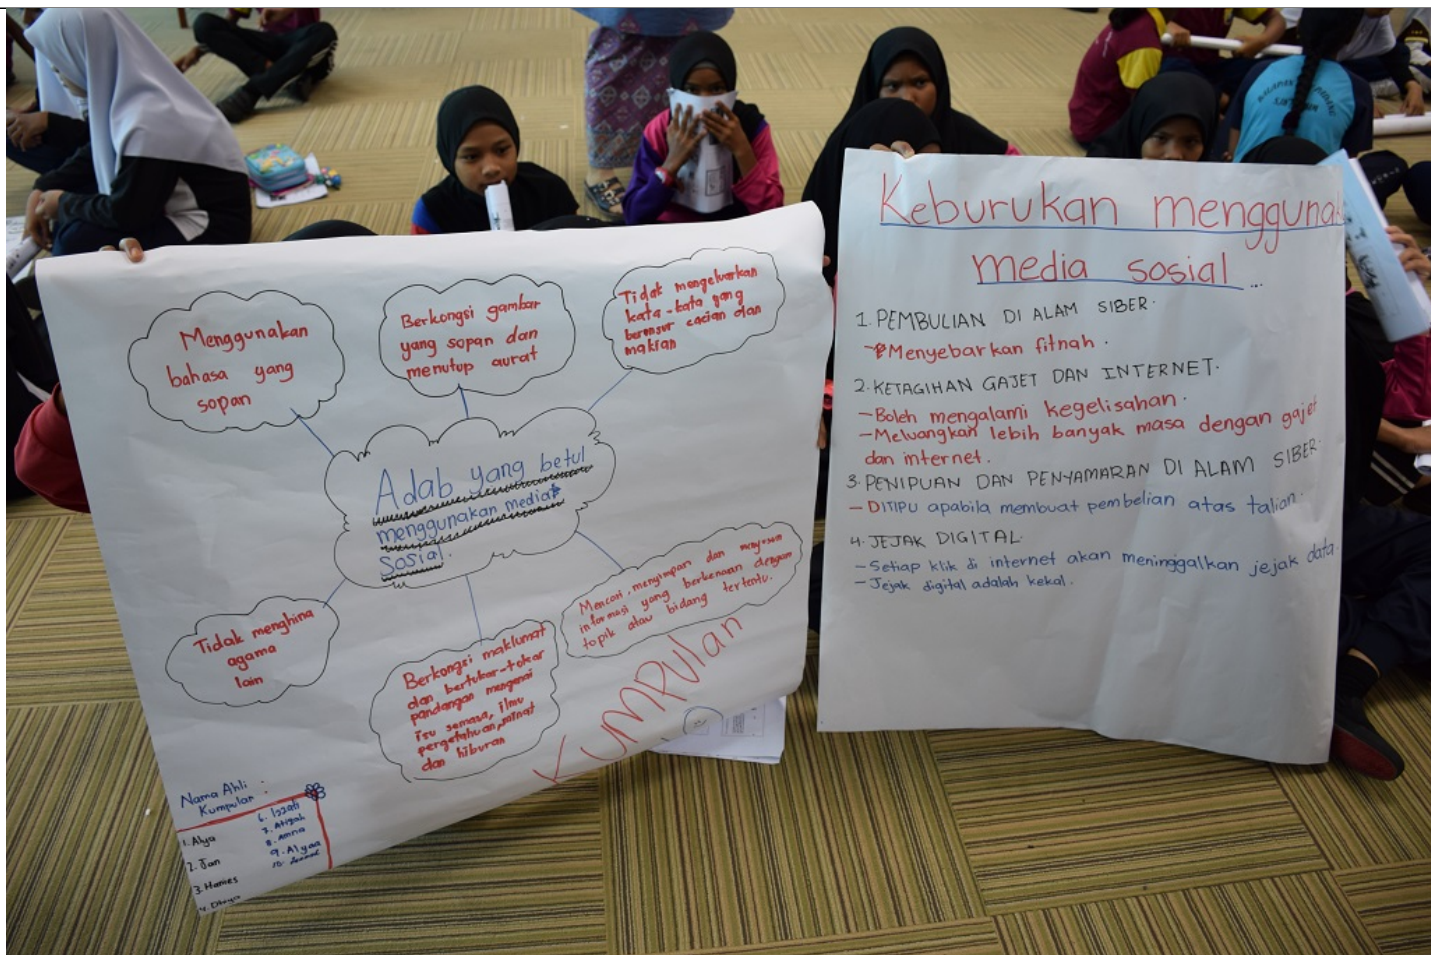 Menggunakan
bahasa yang
sopan
Berkongsi gambar
yang sopan dan
menutup aurat
Tidak mengeluarkan
kata-kata yang
berunsur cacian dan
makian
Adab yang betul
menggunakan media
Sosial.
Tidak menghina
agama
lain
Berkongsi maklumat
dan bertukar-tukar
pandangan mengenai
isu semasa, ilmu
pengetahuan, minat
dan hiburan
Mencari, menyimpan dan menyusun
informasi yang berkenaan dengan
topik atau bidang tertentu.
KUMPULAN
Nama Ahli :
Kumpulan
1. Alya
2. Jan
3. Hanies
4. Divya
6. Izzati
7. Atiqah
8. Amna
9. Alyaa
10.
Keburukan mengguna
media sosial ...
1. PEMBULIAN DI ALAM SIBER.
- Menyebarkan fitnah.
2. KETAGIHAN GAJET DAN INTERNET.
- Boleh mengalami kegelisahan.
- Meluangkan lebih banyak masa dengan gajet
dan internet.
3. PENIPUAN DAN PENYAMARAN DI ALAM SIBER.
- DITIPU apabila membuat pembelian atas talian.
4. JEJAK DIGITAL.
- Setiap klik di internet akan meninggalkan jejak data.
- Jejak digital adalah kekal.